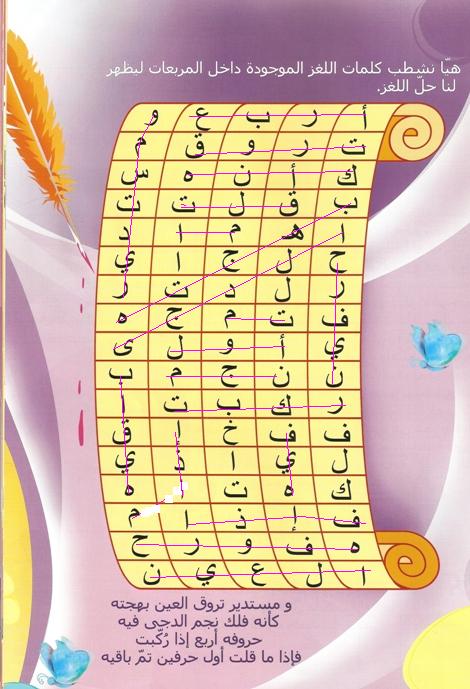 هيّا نشطب كلمات اللغز الموجودة داخل المربعات ليظهر
لنا حلّ اللغز.
أ ر ب ع و
ت ر و ق م
ك أ ن ه س
ب ق ل ت ت
ا هـ م ا د
ح ل ج ا ي
ر ل د ت ر
ف ت م ح ه
ي أ و ل ى
ن ن ج م ب
ر ك ب ت ا
ف ف خ إ ق
ل ي ا ذ ي
ك ه ت ه
ف إ ذ ا م
ه ف و ر ح
ا ل ع ي ن
و مستدير تروق العين بهجته
كأنه فلك نجم الدجى فيه
حروفه أربع إذا رُكّبت
فإذا ما قلت أول حرفين تمّ باقيه